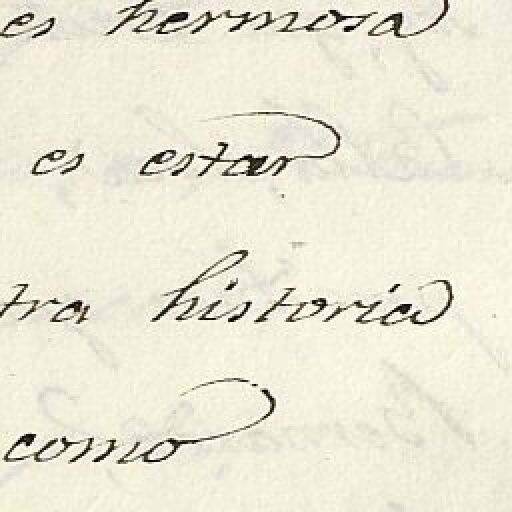 es hermosa
es estar
tra historia
como